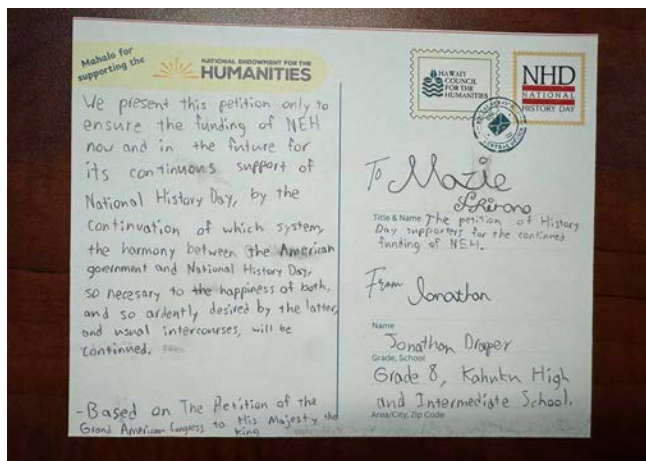 Mahalo for
supporting the
NATIONAL ENDOWMENT FOR THE
HUMANITIES
We present this petition only to
ensure the funding of NEH
now and in the future for
its continuous support of
National History Day, by the
continuation of which system,
the harmony between the American
government and National History Day,
so necesary to the happiness of both,
and so ardently desired by the latter,
and usual intercourses, will be
continued.
-Based on The Petition of the
Grand American Congress to His Majesty the
King
HAWAI'I
COUNCIL
FOR THE
HUMANITIES
NHD
NATIONAL
HISTORY DAY
To Mazie
Hirono
Title & Name The petition of History
Day supporters for the continued
funding of NEH.
From Jonathan
Name
Jonathan Draper
Grade, School
Grade 8, Kahuku High
and Intermediate School.
Area/City, Zip Code